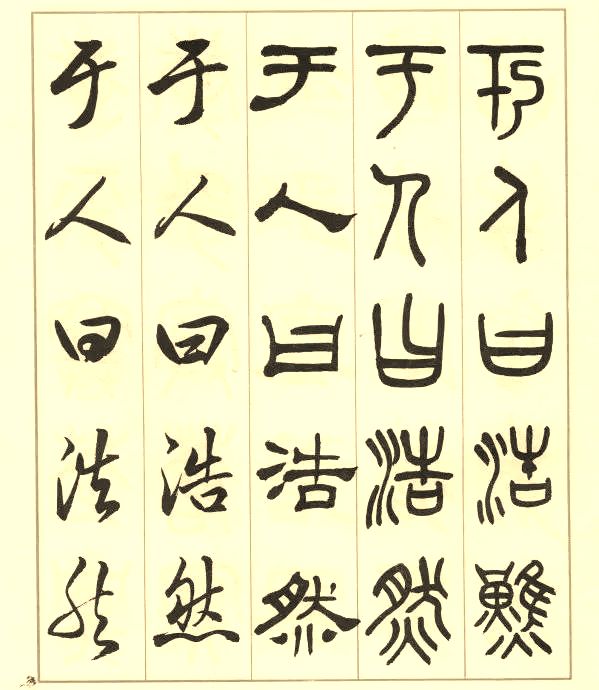 于人曰浩然
于人曰浩然
于人曰浩然
于人曰浩然
于人曰浩然